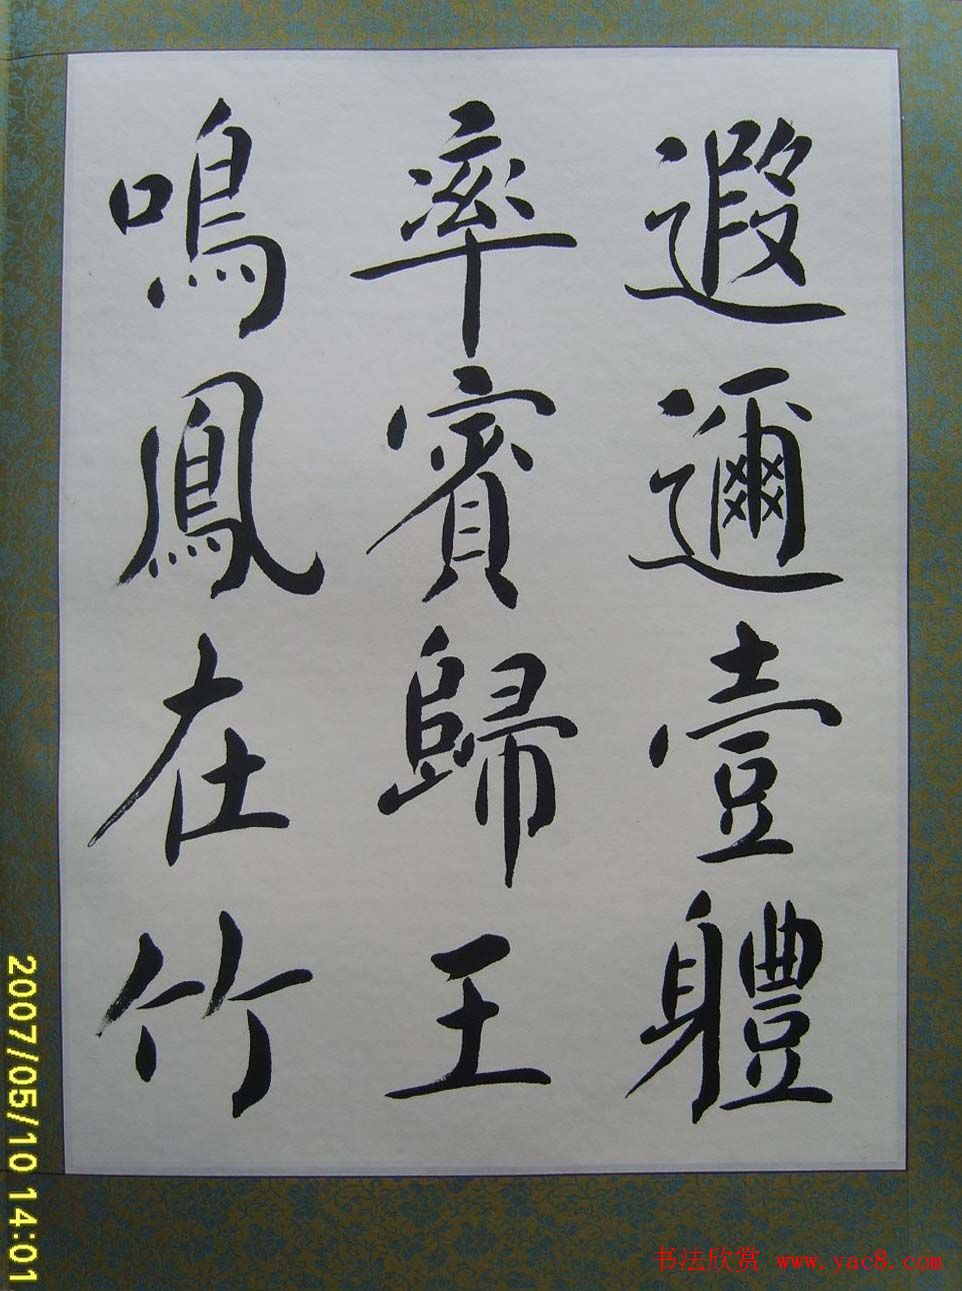 遐邇壹軆
率賓歸王
鳴鳳在竹
2007/05/10 14:01
书法欣赏 www.yac8.com